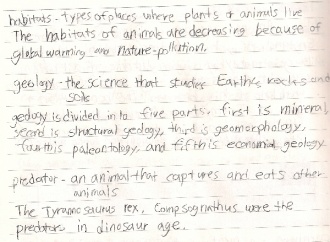 habitats - types of places where plants & animals live
The habitats of animals are decreasing because of
global warming and nature-pollution.
geology - the science that studies Earth, rocks and
soils
geology is divided into five parts. first is mineral,
second is structural geology, third is geomorphology,
fourth is paleontology, and fifth is economical geology
predator - an animal that captures and eats other
animals
The Tyrannosaurus rex, Compsognathus were the
predators in dinosaur age.